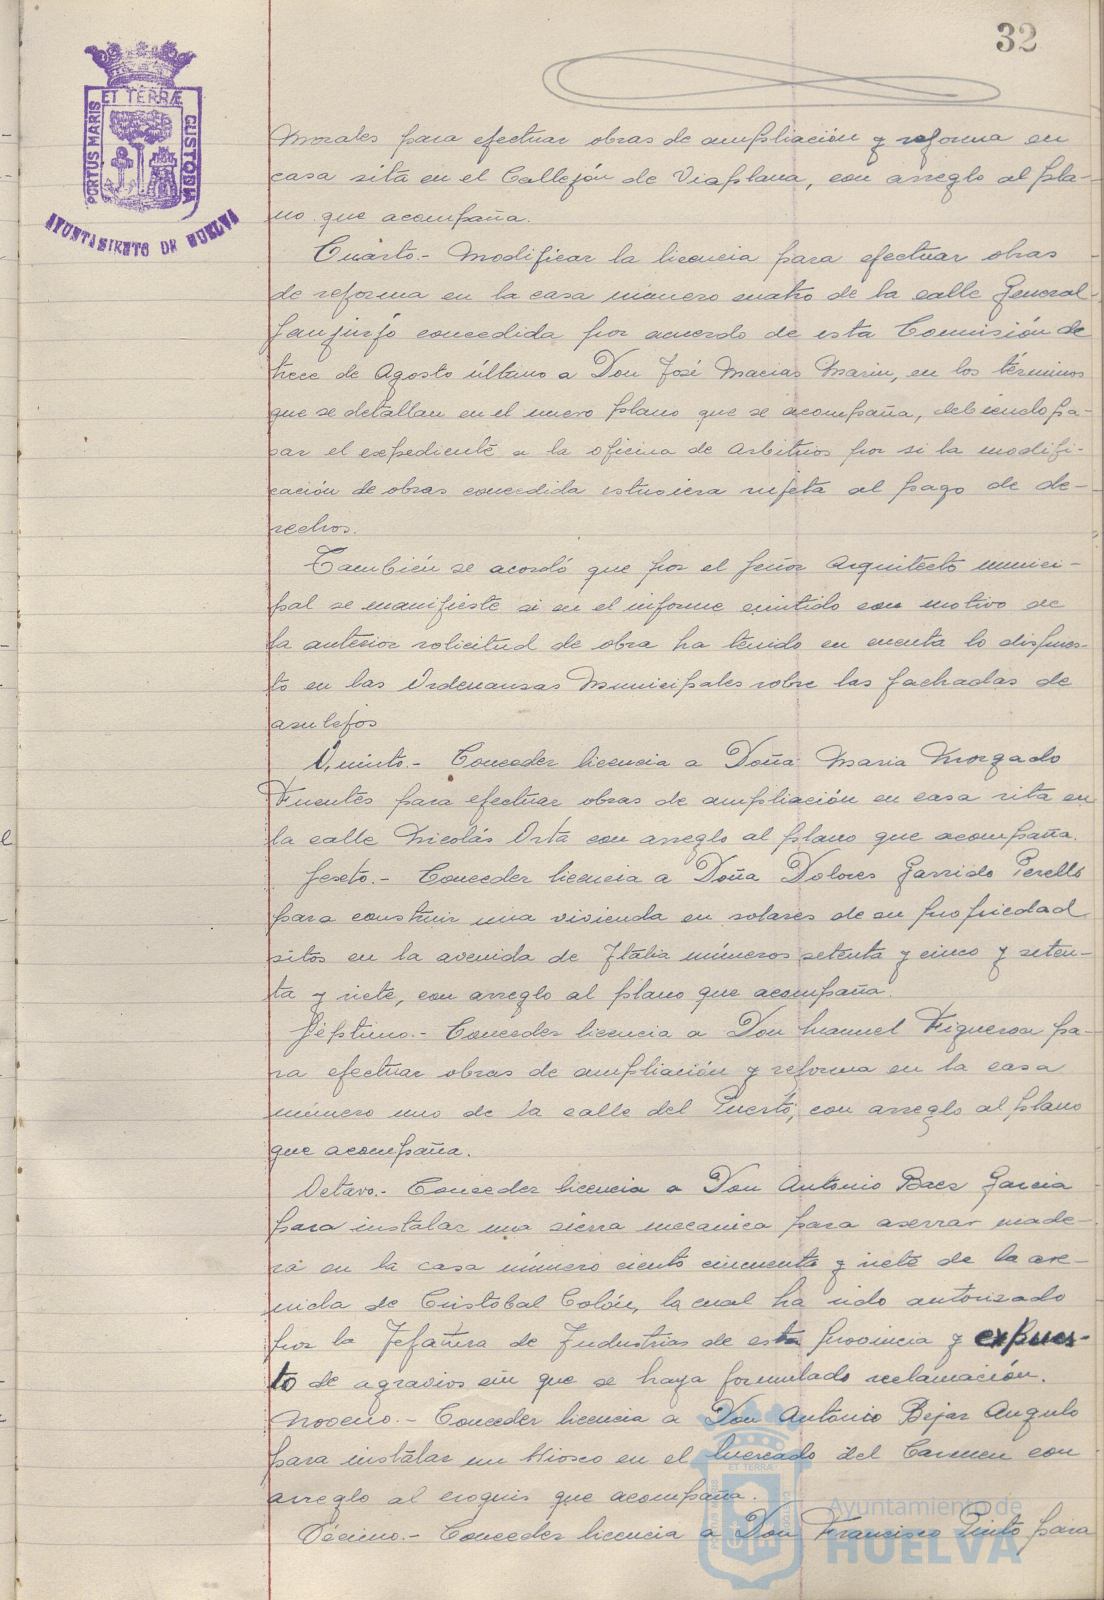 32
PORTUS MARIS ET TERRÆ CUSTODIA
AYUNTAMIENTO DE HUELVA
Morales para efectuar obras de ampliación y reforma en
casa sita en el Callejón de Viaplana, con arreglo al pla-
no que acompaña.
Cuarto.- Modificar la licencia para efectuar obras
de reforma en la casa número cuatro de la calle General
Sanjurjo concedida por acuerdo de esta Comisión de
trece de Agosto último a Don José Macias Marin, en los términos
que se detallan en el nuevo plano que se acompaña, debiendo pa-
sar el expediente a la oficina de Arbitrios por si la modifi-
cación de obras concedida estuviera sujeta al pago de de-
rechos.
También se acordó que por el Señor Arquitecto munici-
pal se manifieste si en el informe emitido con motivo de
la anterior solicitud de obra ha tenido en cuenta lo dispues-
to en las Ordenansas Municipales sobre las fachadas de
asulejos
Quinto.- Conceder licencia a Doña Maria Morgado
Fuentes para efectuar obras de ampliación en casa sita en
la calle Nicolás Orta con arreglo al plano que acompaña.
Sexto.- Conceder licencia a Doña Dolores Garrido Perelló
para construir una vivienda en solares de su propiedad
sitos en la avenida de Italia números setenta y cinco y seten-
ta y siete, con arreglo al plano que acompaña.
Séptimo.- Conceder licencia a Don Manuel Figueroa pa-
ra efectuar obras de ampliación y reforma en la casa
número uno de la calle del Puerto, con arreglo al plano
que acompaña.
Octavo.- Conceder licencia a Don Antonio Baez Garcia
para instalar una sierra mecanica para aserrar made-
ra en la casa número ciento cincuenta y siete de la ave-
nida de Cristobal Colón, la cual ha sido autorisado
por la Jefatura de Industrias de esta provincia y expues-
to de agravios sin que se haya formulado reclamación.
Noveno.- Conceder licencia a Don Antonio Bejar Angulo
para instalar un Kiosco en el Mercado del Carmen con
arreglo al croquis que acompaña.
Décimo.- Conceder licencia a Don Francisco Pinto para
Ayuntamiento de
HUELVA